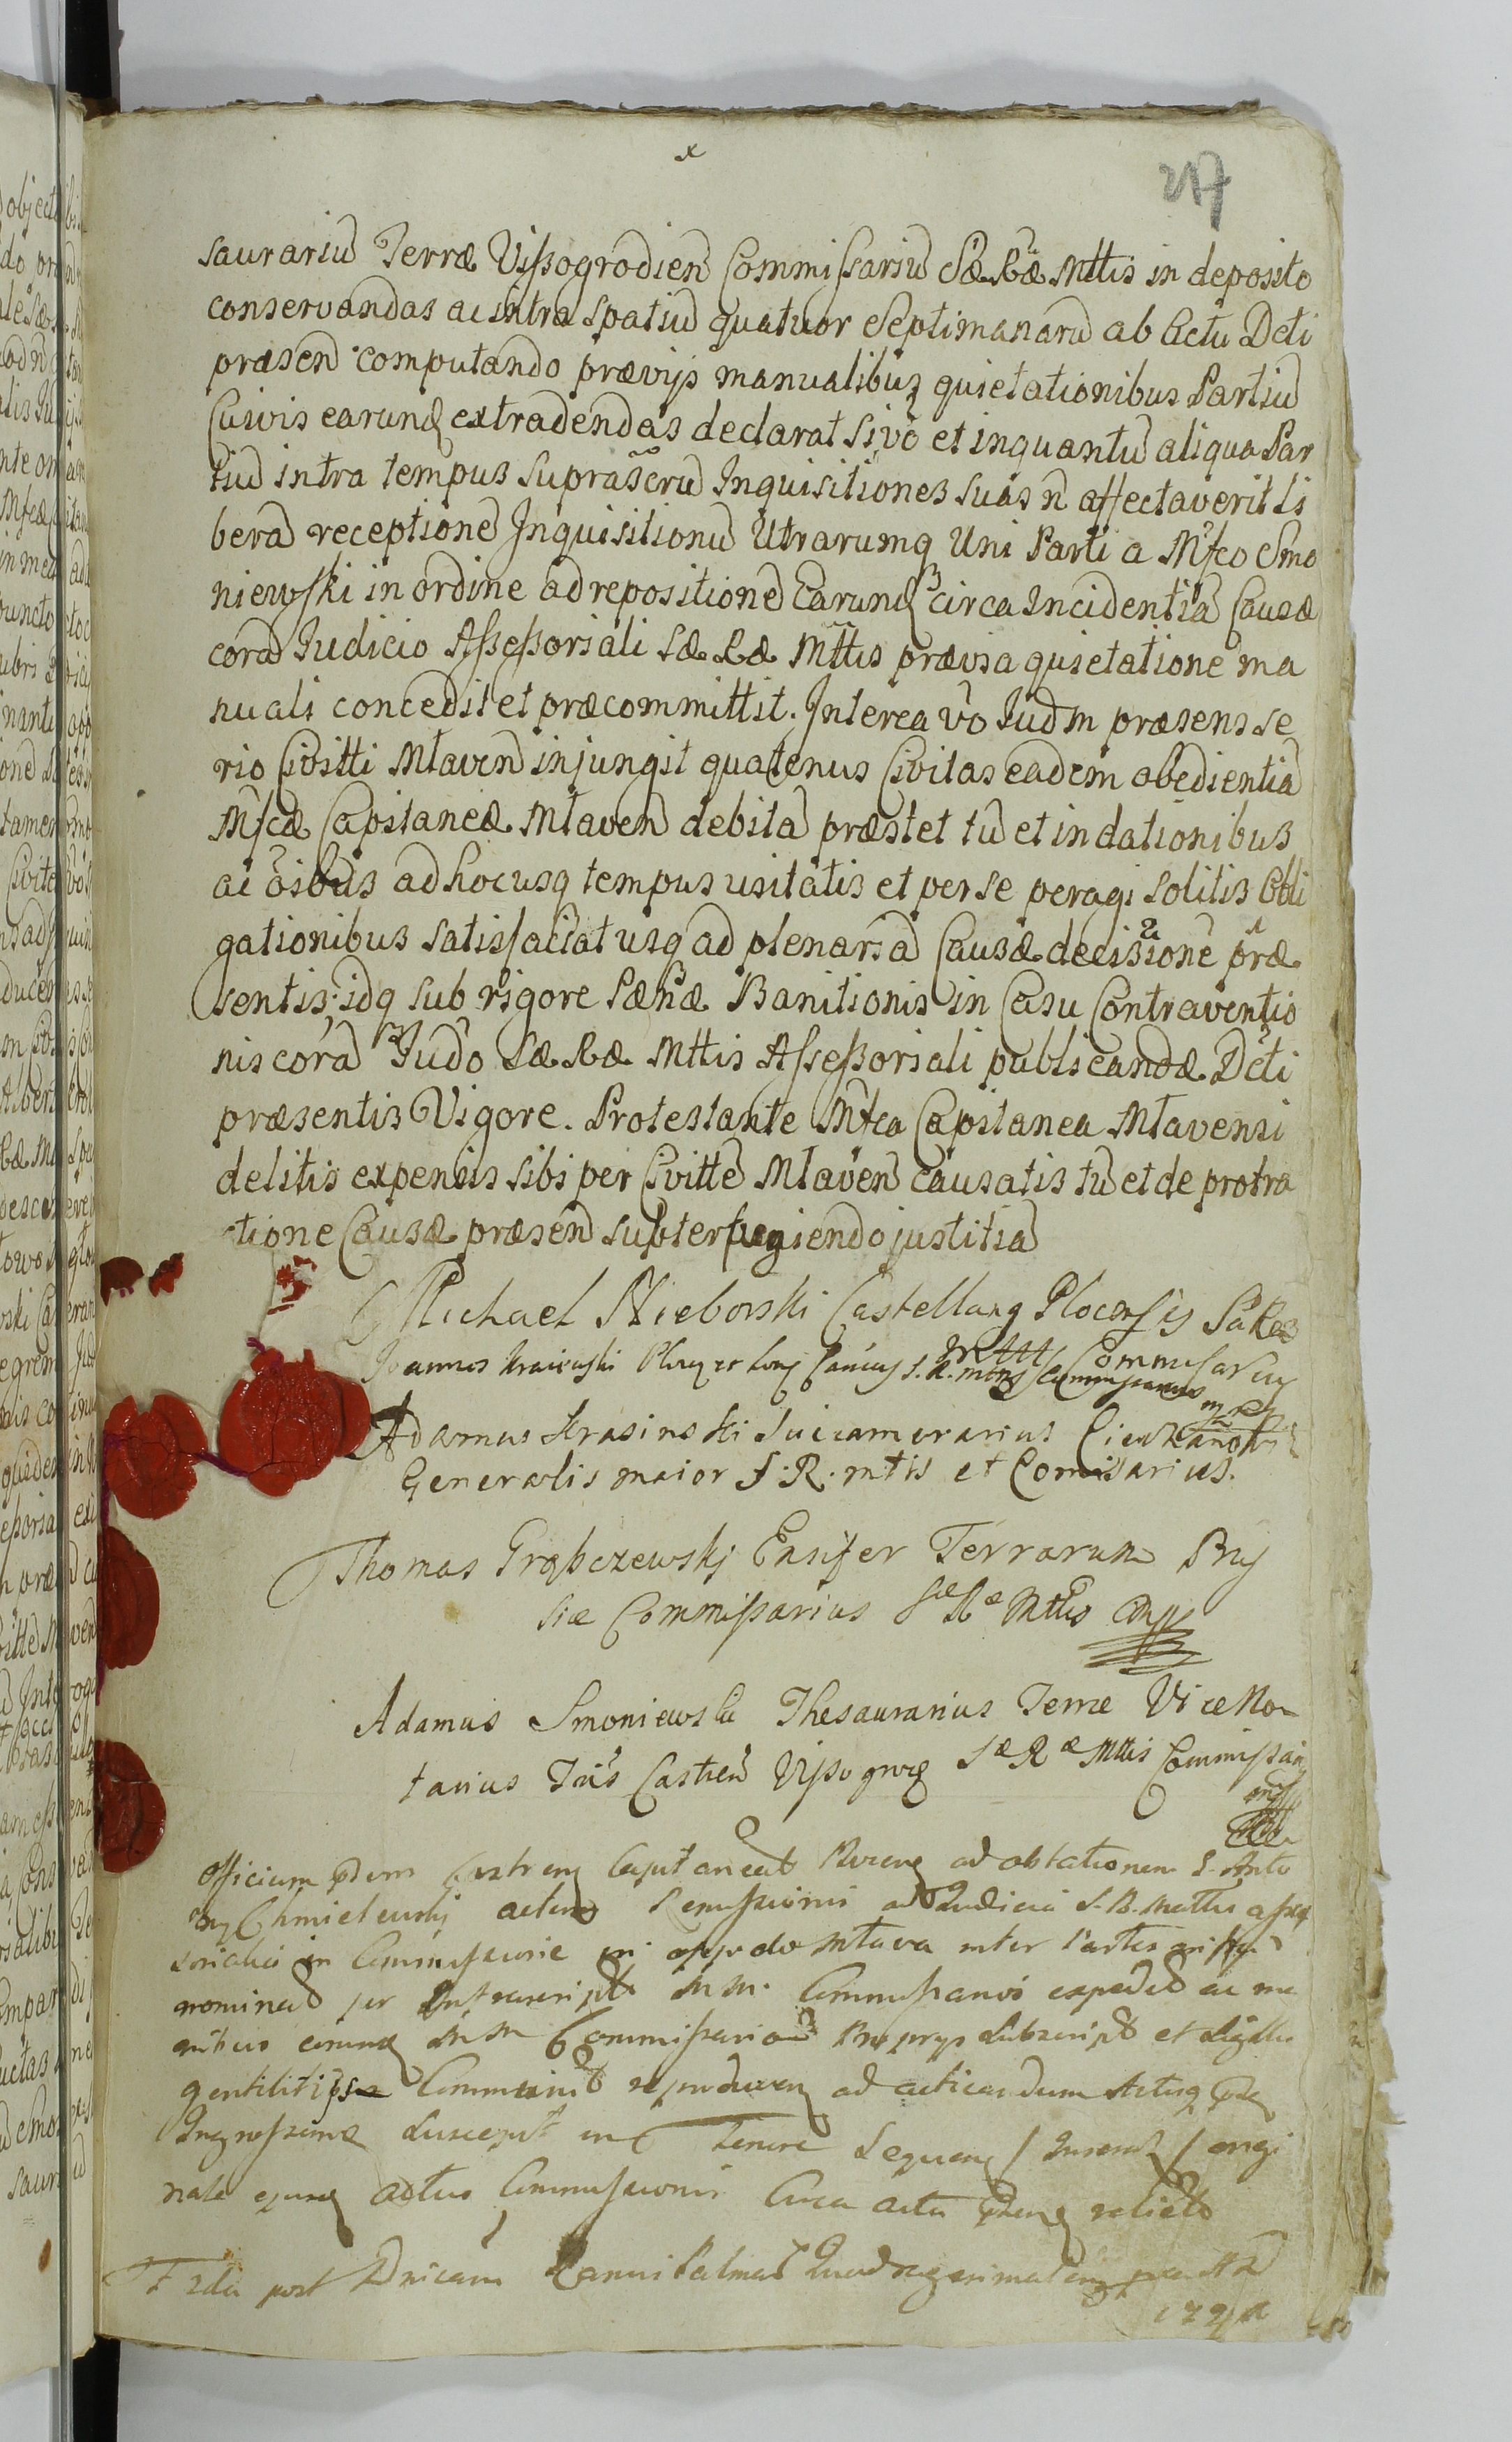 217
saurariu Terræ Vissogrodien Commissariu Sæ Ræ Mttis in deposito
conservandas ac intra spatiu quatuor Septimanaru ab Actu Dcti
præsen computando prævijs manualibus quietationibus Partiu
Cuivis earund extradendas declarat sivo et inquantu aliqua Par
tiu intra tempus suprascru Inquisitiones suas n affectaverit li
bera receptione Inquisitionu Utrarumq Uni Parti a Mfco Smo
niewski in ordine ad repositione Earund circa Incidentia Causæ
cora Iudicio Assessoriali Sæ Ræ Mttis prævia quietatione ma
nuali concedit et præcommittit. Interea vo Iudm præsens se
rio Civitti Mlaven injungit quatenus Civitas eadem obedientia
Mfcæ Capitaneæ Mlaven debita præstet tu et in dationibus
ac oibus ad hocusq tempus usitatis et per se peragi solitis Obli
gationibus satisfaciat usq ad plenaria Causæ decisione præ
sentis; idq sub rigore Pænæ Banitionis in Casu Contraventio
nis cora Iudo Sæ Ræ Mttis Assessoriali publicandæ Dcti
præsentis Vigore. Protestante Mfca Capitanea Mlavensi
de litis expensis sibi per Civitte Mlaven causatis tu et de protra
ctione Causæ præsen subterfugiendo justitia
Michael Nieborski Castellang Plocensis
Mttt Commisarius
Joannes Kraiewski S. R. mtris Commissarius
Adamus Krasinski Succamerarius Ciechanow
Generalis maior S. R. mtis et Comisarius.
Thomas Grąbczewskj Ensifer Terrarum Prus
siæ Commissarius Sæ Ræ Mttis mp
Adamus Smoniewski Thesaurarius Terræ Vice No
tarius Castren Vissogrog Sæ Ræ Mttis Commissari
mp
Officium Castren Capitaneal ad oblationem Anto
Chmielewski actum Remissionis ad Iudicia S. R. Mattis asses
sorialia in Commissione in oppido Mlava inter Partes
nominat per Infrascript MM. Commissarios expedit ac ma
nibus MM Commissariou proprys subscript et Sigillis
gentilitijs Communit ad acticandum
suscepit Tenore Sequen / / origi
nale actus Commissionis circa acta relicto
Fria post Dnicam Ramis Palmar Quadragesimalem